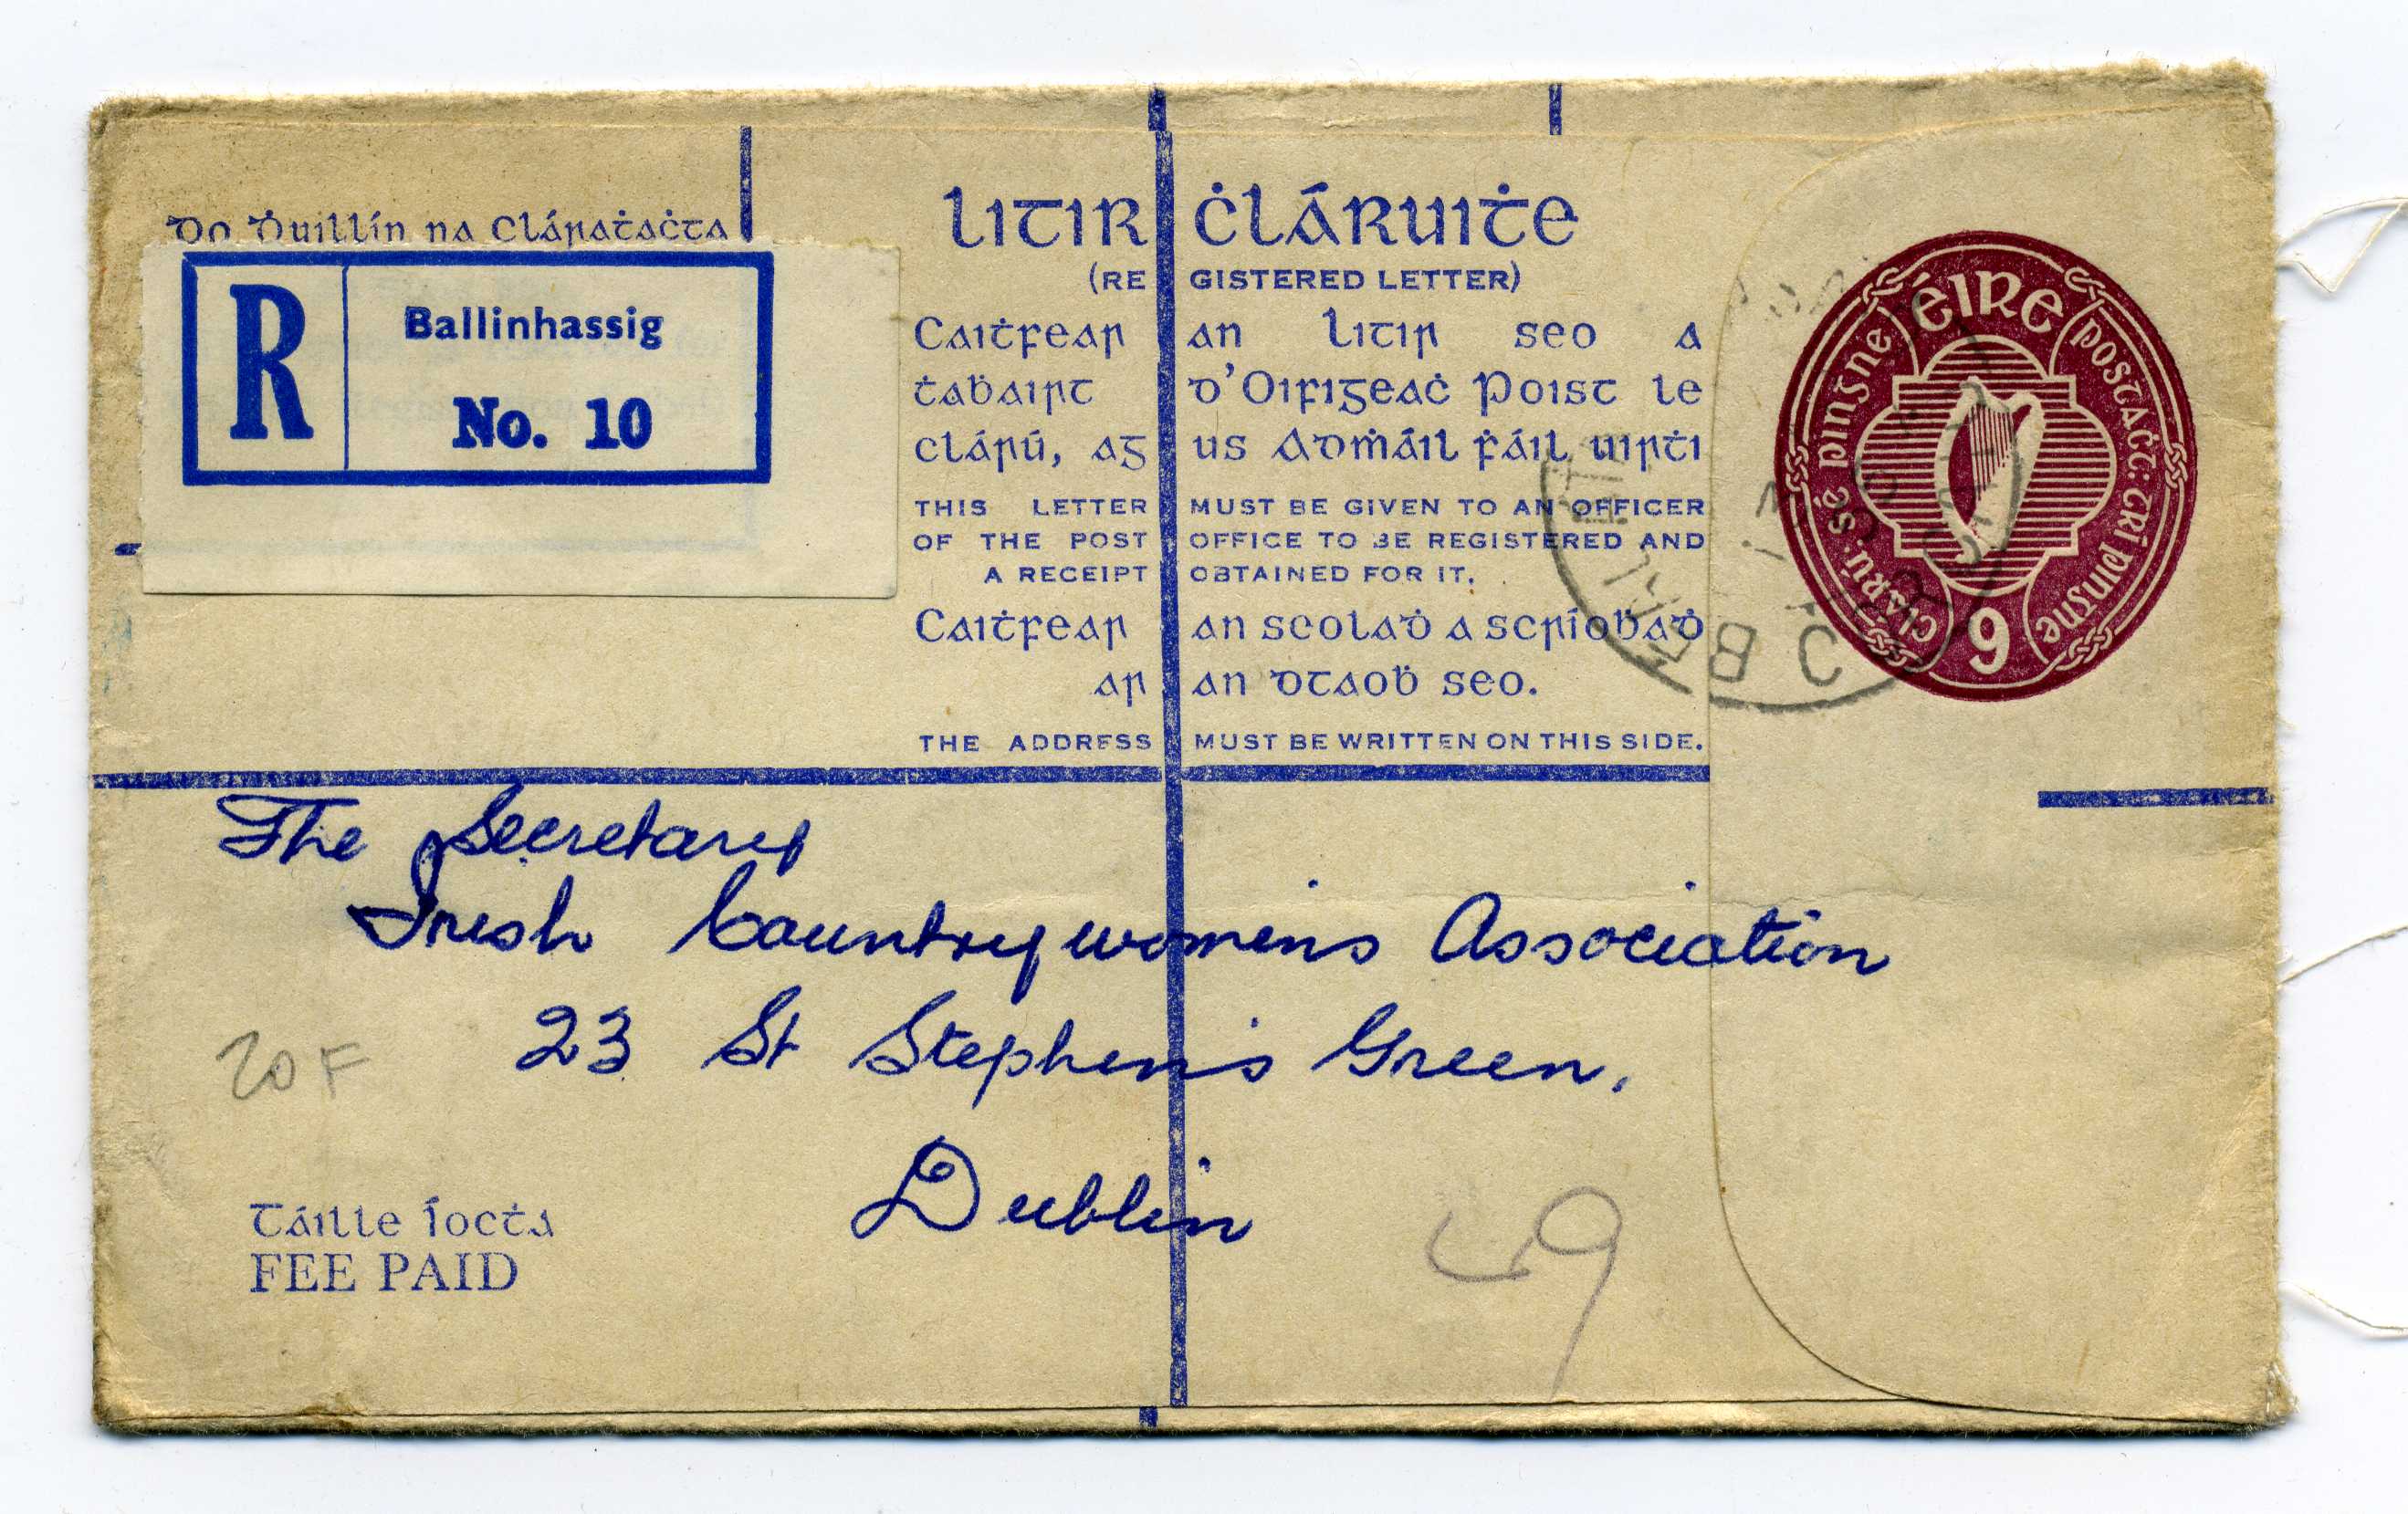 Do Ḋuillín na Cláraṫaċta
R Ballinhassig
No. 10
LITIR ĊLÁRUIṪE
(REGISTERED LETTER)
Caiṫfear an litir seo a
ṫaḃairt d'Oifigeaċ Poist le
clárú, agus Admáil ḟáil uirṫi
THIS LETTER MUST BE GIVEN TO AN OFFICER
OF THE POST OFFICE TO BE REGISTERED AND
A RECEIPT OBTAINED FOR IT.
Caiṫfear an seolaḋ a scríoḃaḋ
ar an dtaoḃ seo.
THE ADDRESS MUST BE WRITTEN ON THIS SIDE.
ÉIRE
postaċt: trí pingne
cláru: sé pingne
9
The Secretary
Irish Countrywomen's Association
23 St Stephen's Green.
Dublin
20 F
Táille Íocṫa
FEE PAID